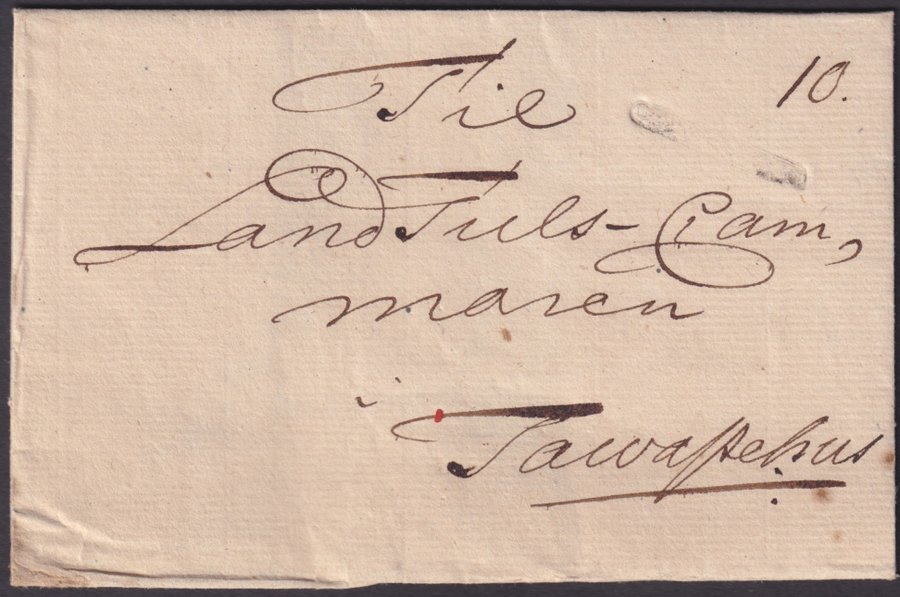 10.
Til
LandTuls-Cam,
maren
i
Tawastehus